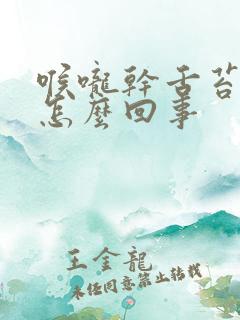 喉嚨幹舌苔
怎麼回事
王金龍
未經同意禁止轉載